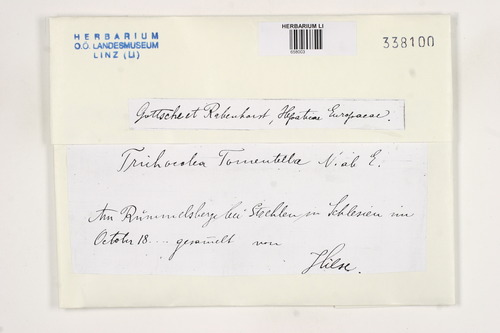 HERBARIUM
O.Ö. LANDESMUSEUM
LINZ (LI)
HERBARIUM LI
338100
Gottsche et Rabenhorst, Hepaticae Europaeae.
Trichocolea Tomentella N. ab E.
Am Rummelsberge bei Strehlen in Schlesien im
October 18... gesammelt von
Hilse.